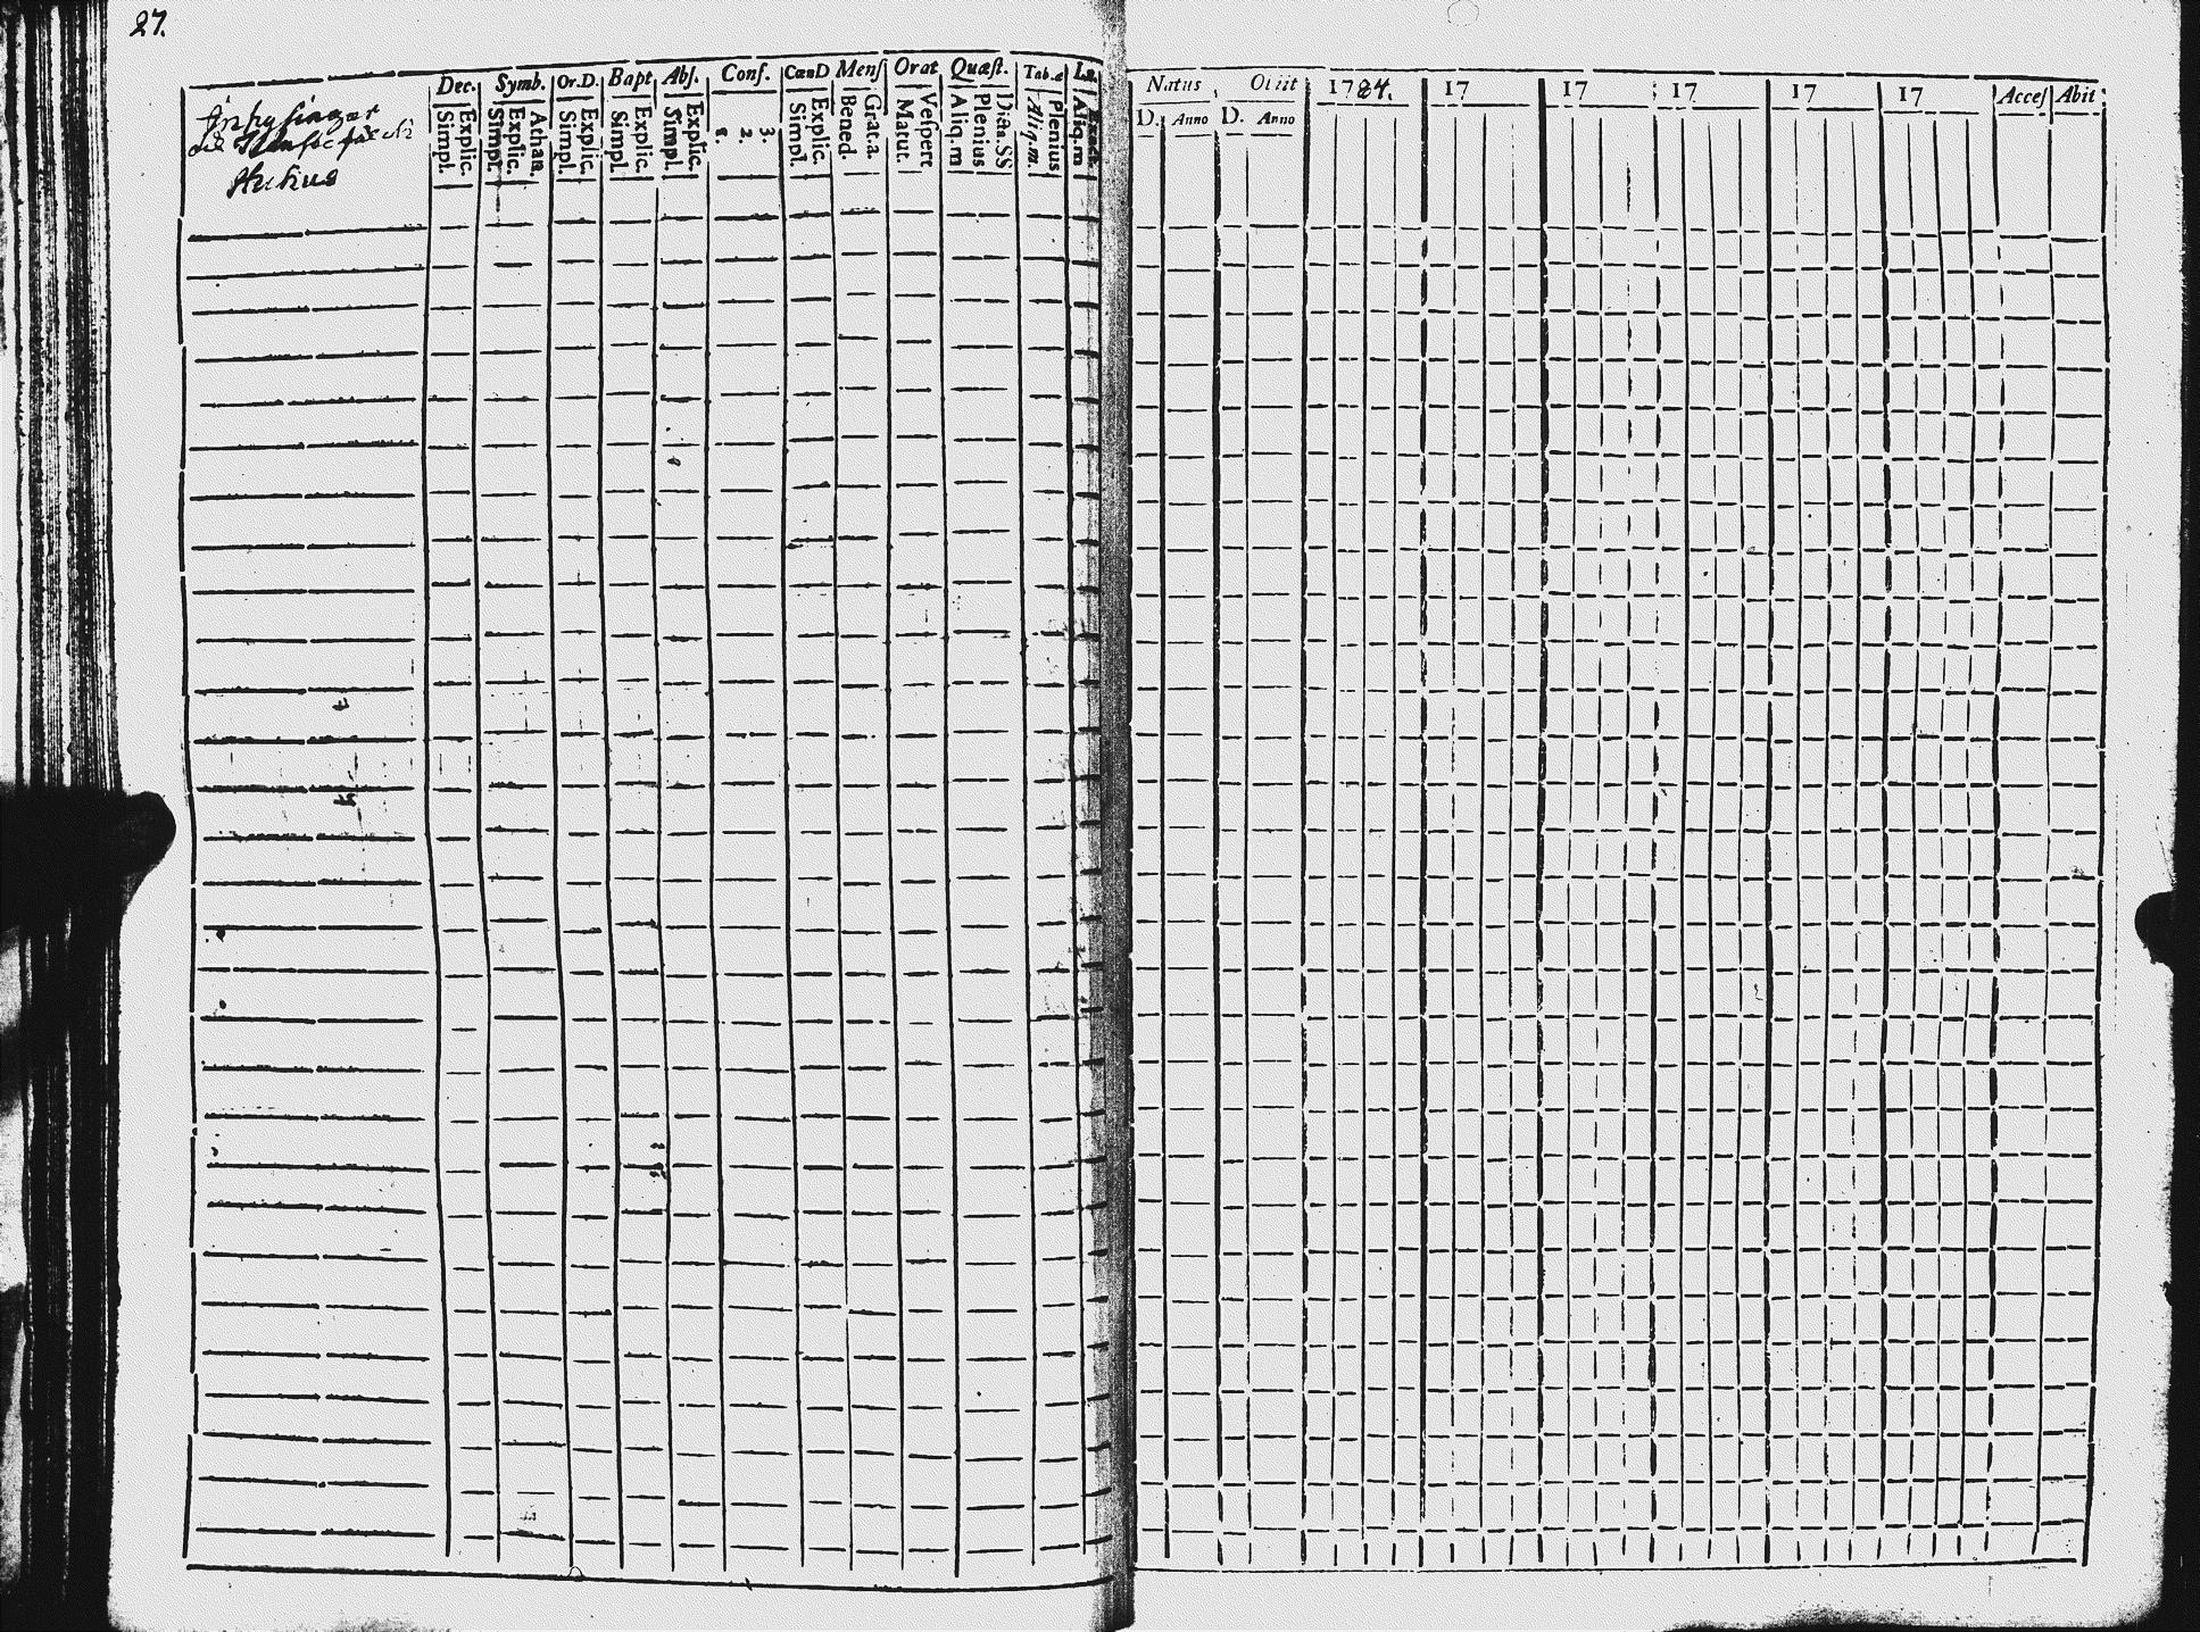 27.
Dec. Symb. Or.D. Bapt. Abſ. Conf. CœnD Menſ Orat Quæſt. Tab.æ
Simpl. Explic. Simpl. Explic. Athan. Simpl. Explic. Simpl. Explic. Simpl. Explic. 1. 2. 3. Simpl. Explic. Bened. Grat.a. Matut. Veſpert Aliq.m Plenius Dicta.SS Aliq.m. Plenius Aliq.m
Natus Obiit 1784. 17 17 17 17 17 Acceſ Abit
D. Anno D. Anno